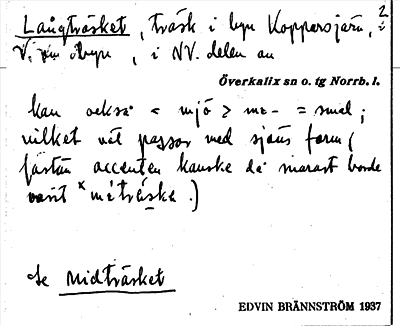 Långträsket, träsk i byn Kopparsjärn, i 2
V. om byn, i NV. delen av
Överkalix sn o. tg Norrb. l.
kan också < mjö > me- = smal;
vilket väl passar med sjöns form (
fastän accenten kanske då snarast borde
varit × métréska.)
Se Midträsket
EDVIN BRÄNNSTRÖM 1937